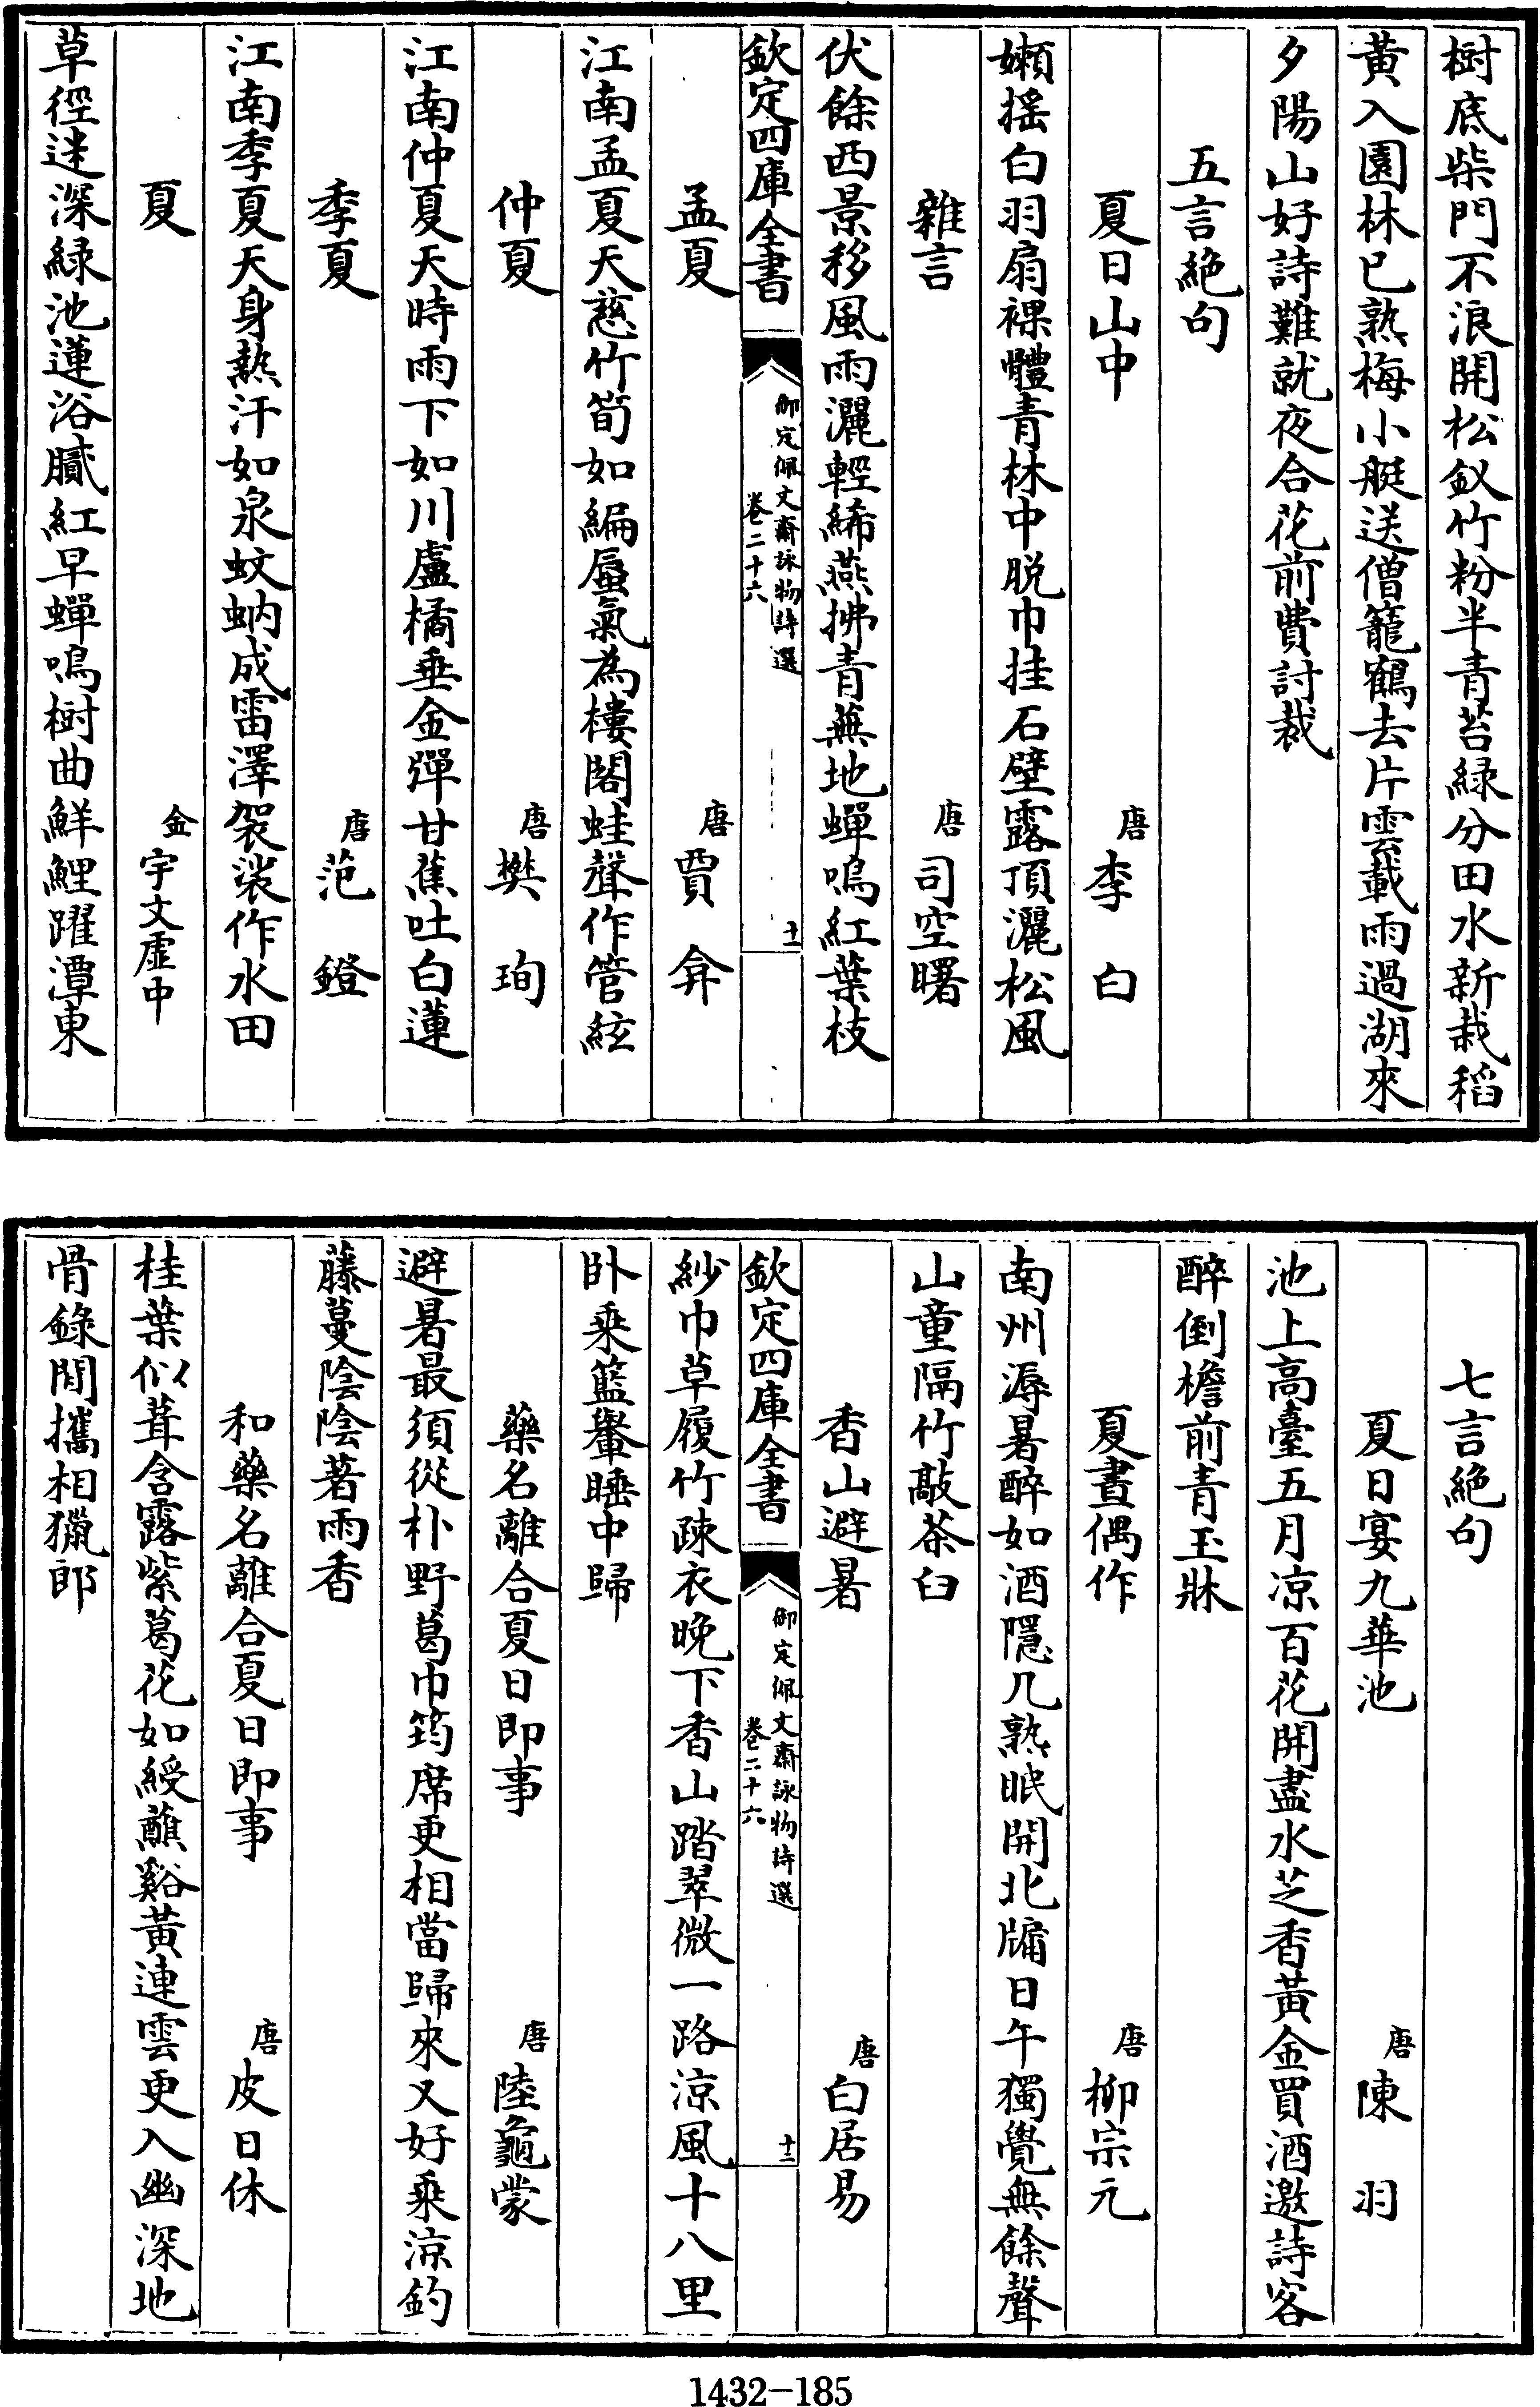 樹底柴門不浪開松釵竹粉半青苔緑分田水新栽稻
黃入園林已熟梅小艇送僧籠鶴去片雲載雨過湖來
夕陽山好詩難就夜合花前費討裁
五言絶句
夏日山中 唐 李白
嬾搖白羽扇裸體青林中脱巾挂石壁露頂灑松風
雜言 唐 司空曙
伏餘西景移風雨灑輕絺燕拂青蕪地蟬鳴紅葉枝
欽定四庫全書
御定佩文齋詠物詩選
卷二十六
十一
孟夏 唐 賈弇
江南孟夏天慈竹筍如編蜃氣為樓閣蛙聲作管絃
仲夏 唐 樊珣
江南仲夏天時雨下如川盧橘垂金彈甘蕉吐白蓮
季夏 唐 范鐙
江南季夏天身熱汗如泉蚊蚋成雷澤袈裟作水田
夏 金 宇文虛中
草徑迷深緑池蓮浴膩紅早蟬鳴樹曲鮮鯉躍潭東
七言絶句
夏日宴九華池 唐 陳羽
池上高臺五月凉百花開盡水芝香黃金買酒邀詩客
醉倒檐前青玉牀
夏晝偶作 唐 柳宗元
南州溽暑醉如酒隱几熟眠開北牖日午獨覺無餘聲
山童隔竹敲茶臼
香山避暑 唐 白居易
欽定四庫全書
御定佩文齋詠物詩選
卷二十六
十二
紗巾草履竹疎衣晚下香山踏翠微一路涼風十八里
卧乘籃轝睡中歸
藥名離合夏日即事 唐 陸龜蒙
避暑最須從朴野葛巾筠席更相當歸來又好乘涼釣
藤蔓陰陰著雨香
和藥名離合夏日即事 唐 皮日休
桂葉似茸含露紫葛花如綬蘸谿黃連雲更入幽深地
骨錄閒攜相獵郎
1432-185